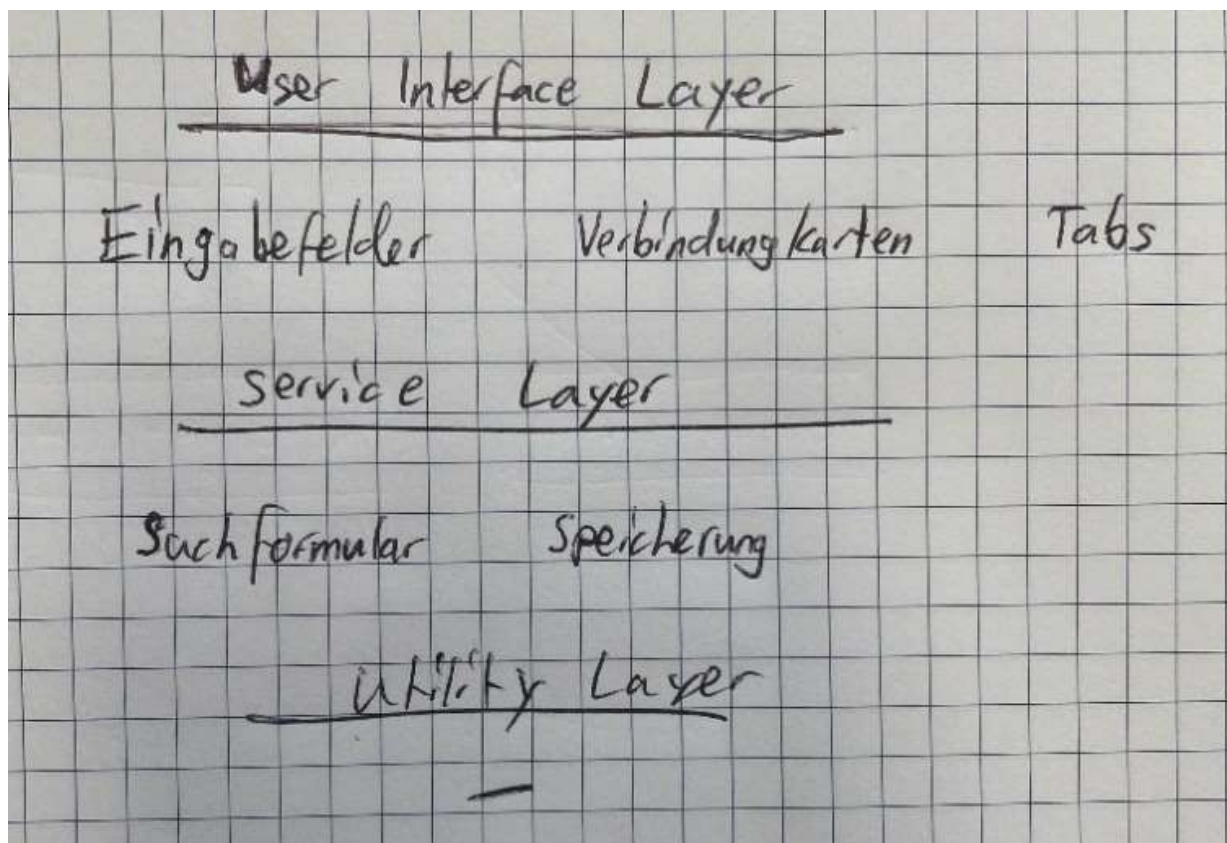 User Interface Layer
Eingabefelder Verbindungkarten Tabs
Service Layer
Suchformular Speicherung
Utility Layer
–